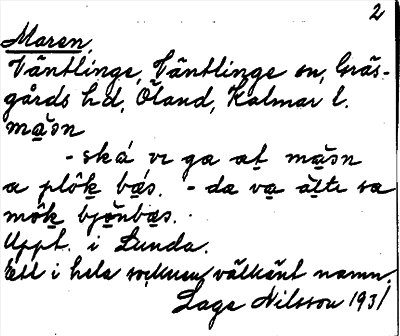 2
Maren,
Väntlinge, Väntlinge sn, Gräs-
gårds hd, Öland, Kalmar l.
ma̱sn
- ská vi ga at mas̱n
a plôk bás. - da va älti sa
môk bjǫ̈nbas.
Uppt. i Lunda.
Ett i hela socknen välkänt namn.
Lage Nilsson 1931